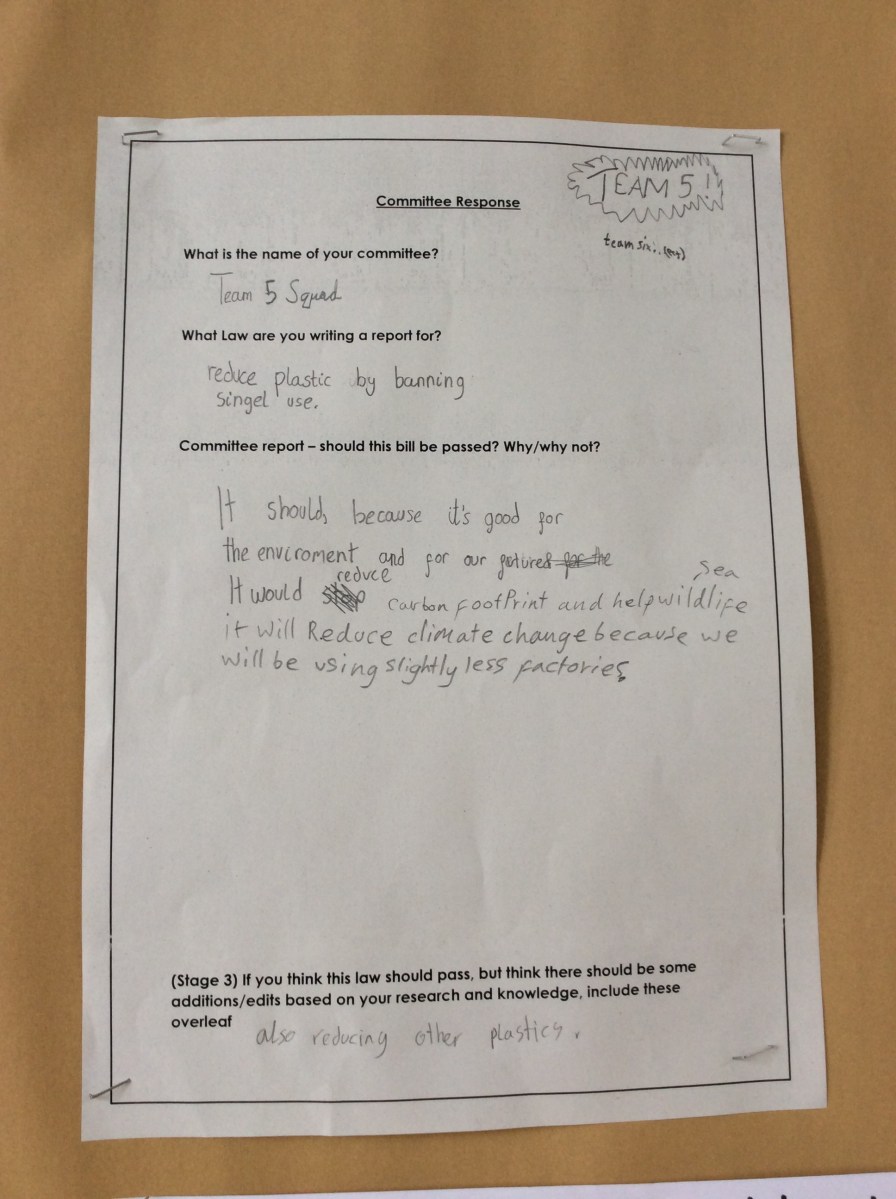 TEAM 5!
Committee Response
team six..
What is the name of your committee?
Team 5 Squad
What Law are you writing a report for?
reduce plastic by banning
singel use.
Committee report – should this bill be passed? Why/why not?
It should, because it's good for
the enviroment and for our future for the
It would reduce carbon footPrint and help sea wildlife
it will Reduce climate change because we
will be using slightly less factories
(Stage 3) If you think this law should pass, but think there should be some
additions/edits based on your research and knowledge, include these
overleaf
also reducing other plastics.